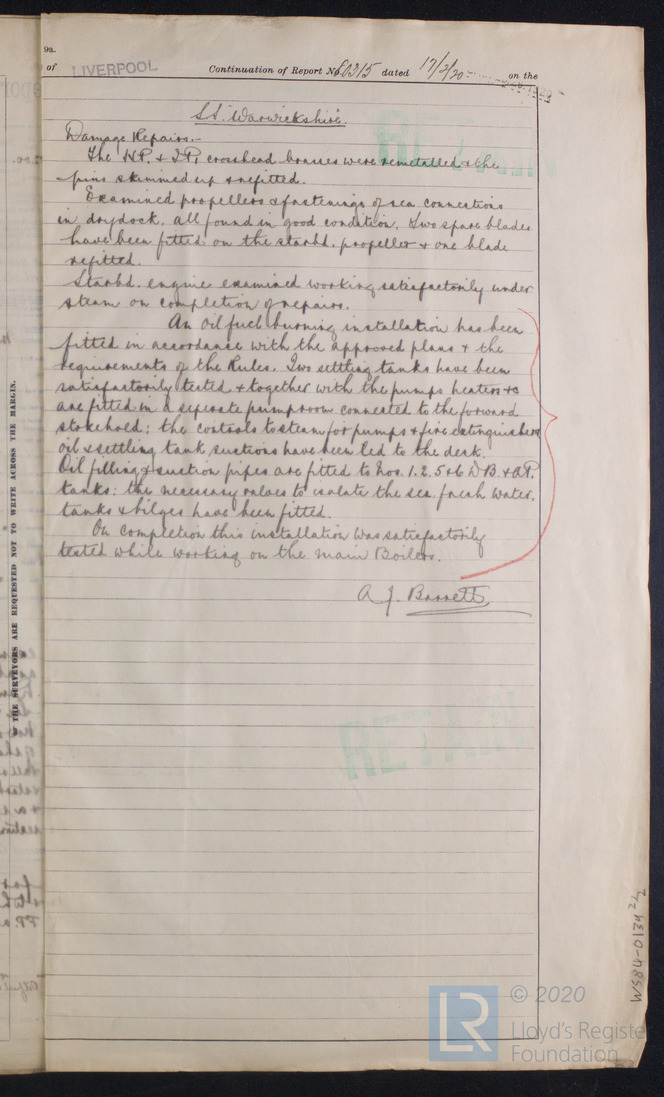 9a.
of LIVERPOOL Continuation of Report No. 80315 dated 17/2/20 on the
S.S. "Warwickshire".
Damage Repairs.-
The H.P. & I.P. crosshead brasses were remetalled & the
pins skimmed up & refitted.
Examined propellers & fastenings of sea connections
in drydock. all found in good condition. Two spare blades
have been fitted on the starbd. propeller & one blade
refitted.
Starbd. engine examined working satisfactorily under
steam on completion of repairs.
An oil fuel burning installation has been
fitted in accordance with the approved plans & the
requirements of the Rules. Two settling tanks have been
satisfactorily tested & together with the pumps heaters &c
are fitted in a seperate pumproom connected to the forward
stokehold; the controls to steam for pumps & fire extinguishers
oil & settling tank suctions have been led to the deck.
Oil filling & suction pipes are fitted to Nos. 1. 2. 5 & 6 D.B. & A.P.
tanks: the necessary valves to isolate the sea, fresh water,
tanks & bilges have been fitted.
On completion this installation was satisfactorily
tested while working on the main Boilers.
A. J. Barrett
RETAIN
RETAIN
THE SURVEYORS ARE REQUESTED NOT TO WRITE ACROSS THE MARGIN.
WS84-0134 2/2
LR © 2020
Lloyd's Register
Foundation